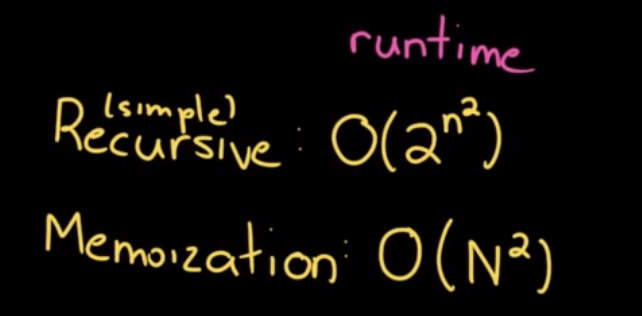 runtime
(simple)
Recursive: O(2^n²)
Memoization: O(N²)